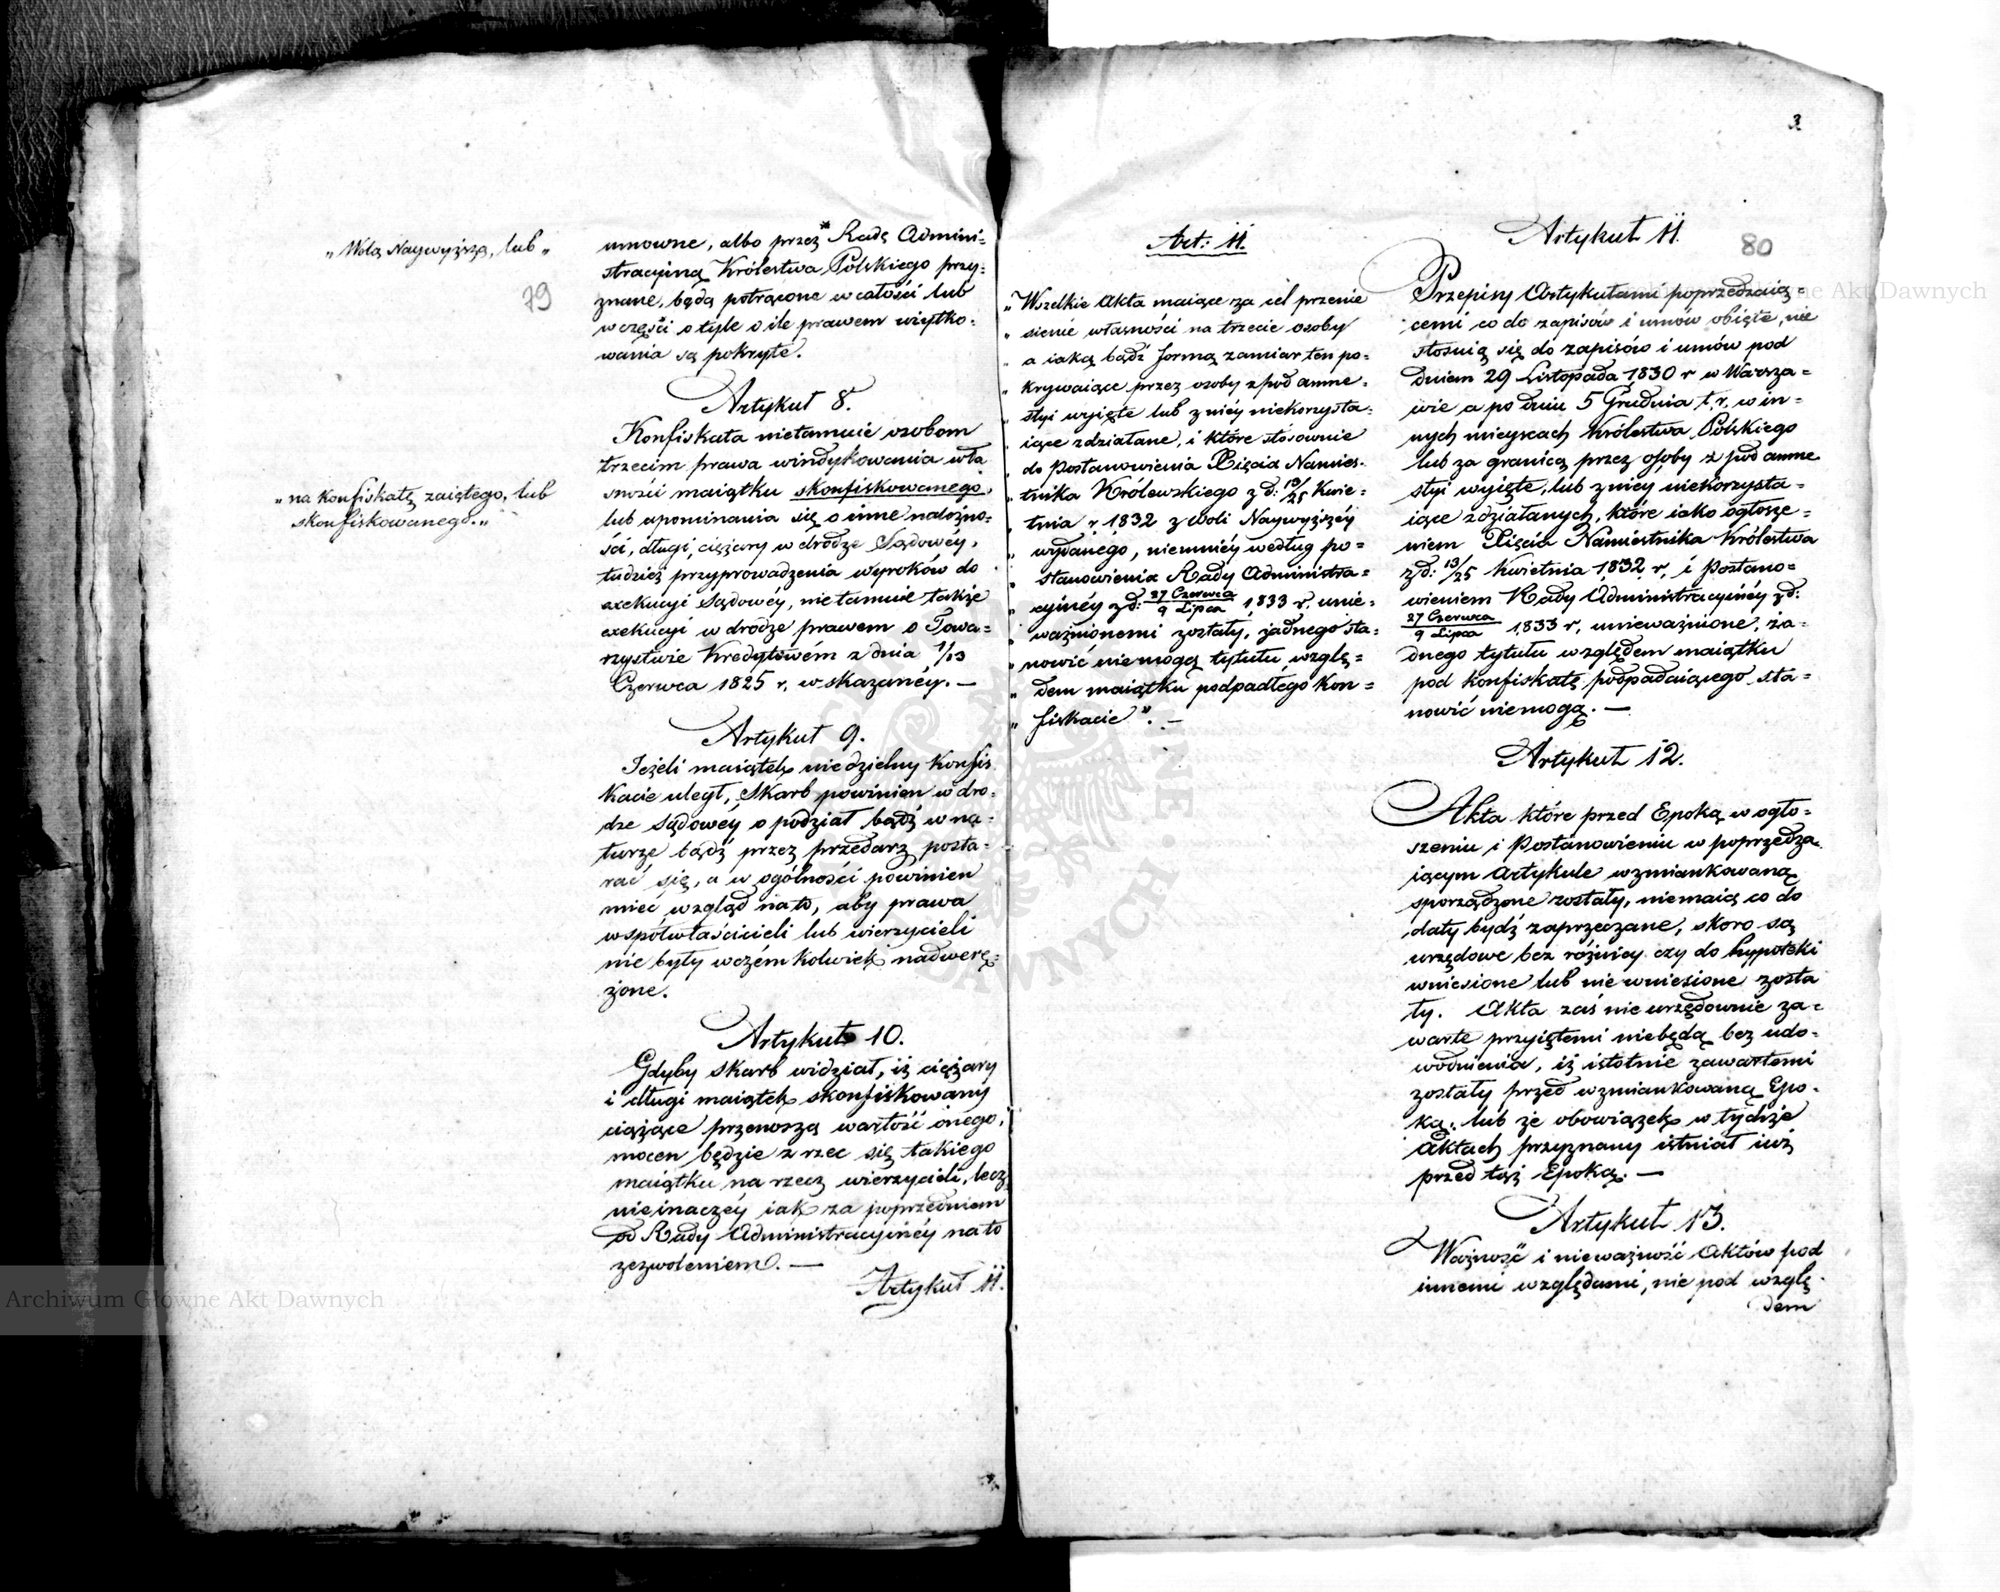 „Wolą Naywyższą, lub„
79
„na konfiskatę zaiętego, lub
skonfiskowanego.„
umowne, albo przez * Radę Admini=
stracyiną Królestwa Polskiego przy=
znane, będą potrącone w całości lub
w części o tyle o ile prawem użytko=
wania są pokryte.
Artykuł 8.
Konfiskata nietamuie osobom
trzecim prawa windykowania wła
sności maiątku skonfiskowanego,
lub upominania się o inne należno=
ści, długi, ciężary w drodze Sądowéy,
tudzież przyprowadzenia wyroków do
exekucyi Sądowéy, nietamuie także
exekucyi w drodze prawem o Towa=
rzystwie Kredytowém z dnia 1/13
Czerwca 1825 r. wskazaney. —
Artykuł 9.
Jeżeli maiątek niedzielny konfis
kacie uległ, Skarb powinien w dro=
dze Sądowéy o podział bądź w na=
turze bądź przez przedarz posta=
rać się, a w ogólności powinien
mieć wzgląd na to, aby prawa
współwłaścicieli lub wierzycieli
nie były wczémkolwiek nadwerę=
żone.
Artykuł 10.
Gdyby Skarb widział, iż ciężary
i długi maiątek skonfiskowany
ciążące przenoszą wartość onego,
mocen będzie zrzec się takiego
maiątku na rzecz wierzycieli, lecz
nieinaczéy iak za poprzedniem
od Rady Administracyinéy na to
zezwoleniem. —
Artykuł 11.
3
80
Art: 11.
„Wszelkie Akta maiące za cel przenie
„sienie własności na trzecie osoby
„a iaką bądź formą zamiar ten po=
„krywaiące przez osoby z pod amne=
„styi wyięte lub z niéy niekorzysta=
„iące zdziałane, i które stosownie
„do Postanowienia Xięcia Namies=
„tnika Królewskiego z d: 13/25 Kwie=
„tnia r 1832 z woli Naywyższéy
„wydanego, niemniéy według po=
„stanowienia Rady Administra=
„cyinéy z d: 27 Czerwca/9 Lipca 1833 r. unie=
„ważnionemi zostały, żadnego sta=
„nowić niemogą tytułu, wzglę=
„dem maiątku podpadłego kon=
„fiskacie". —
Artykuł 11.
Przepisy Artykułami poprzedzaią=
cemi co do zapisów i umów obięte, nie
stosuią się do zapisów i umów pod
dniem 29 Listopada 1830 r w Warsza=
wie a po dniu 5 Grudnia t. r. w in=
nych mieyscach Królestwa Polskiego
lub za granicą przez osoby z pod amne
styi wyięte, lub z niey niekorzysta=
iące zdziałanych, które iako ogłosze=
niem Xięcia Namiestnika Królestwa
z d: 13/25 Kwietnia 1832 r. i Postano=
wieniem Rady Administracyinéy z d:
27 Czerwca/9 Lipca 1833 r. unieważnione, ża=
dnego tytułu względem maiątku
pod konfiskatę podpadaiącego sta=
nowić niemogą. —
Artykuł 12.
Akta które przed Epoką w ogło=
szeniu i Postanowieniu w poprzedza
iącym Artykule wzmiankowaną
sporządzone zostały, niemaią co do
daty bydź zaprzeczane, skoro są
urzędowe bez różnicy czy do hypoteki
wniesione lub nie wniesione zosta
ły. Akta zaś nie urzędownie za=
warte przyiętemi niebędą bez udo=
wodnienia, iż istotnie zawartemi
zostały przed wzmiankowaną Epo=
ką, lub że obowiązek w tychże
Aktach przyznany istniał iuż
przed tąż Epoką. —
Artykuł 13.
Ważność i nieważność Aktów pod
innemi względami, nie pod wzglę=
dem
Archiwum Główne Akt Dawnych
Archiwum Główne Akt Dawnych